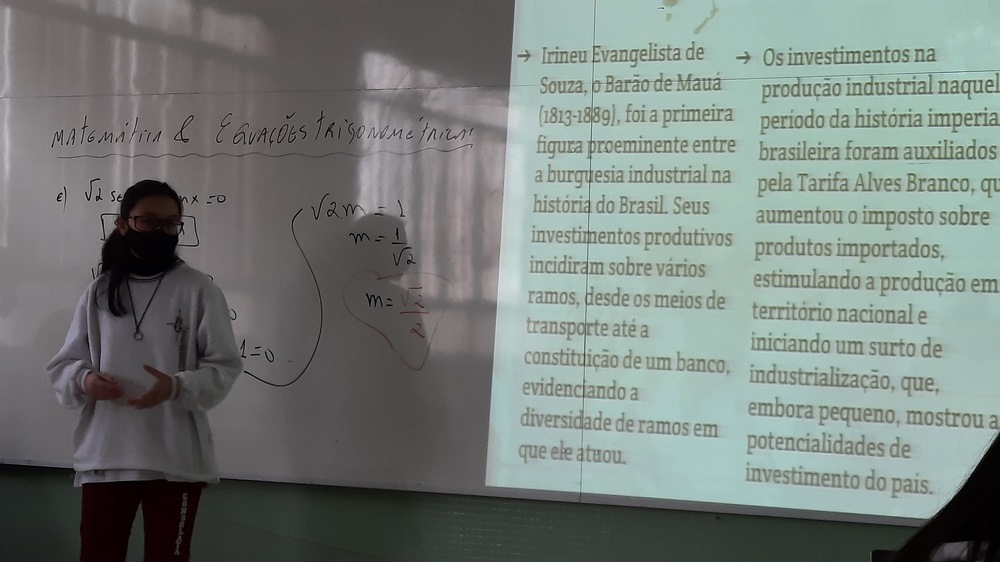 MATEMÁTICA & EQUAÇÕES TRIGONOMÉTRICAS
e) √2 se nx =0
1=0
√2m = 1
m = 1/√2
m = √2/2
→ Irineu Evangelista de
Souza, o Barão de Mauá
(1813-1889), foi a primeira
figura proeminente entre
a burguesia industrial na
história do Brasil. Seus
investimentos produtivos
incidiram sobre vários
ramos, desde os meios de
transporte até a
constituição de um banco,
evidenciando a
diversidade de ramos em
que ele atuou.
→ Os investimentos na
produção industrial naquel
período da história imperia
brasileira foram auxiliados
pela Tarifa Alves Branco, qu
aumentou o imposto sobre
produtos importados,
estimulando a produção em
território nacional e
iniciando um surto de
industrialização, que,
embora pequeno, mostrou a
potencialidades de
investimento do país.